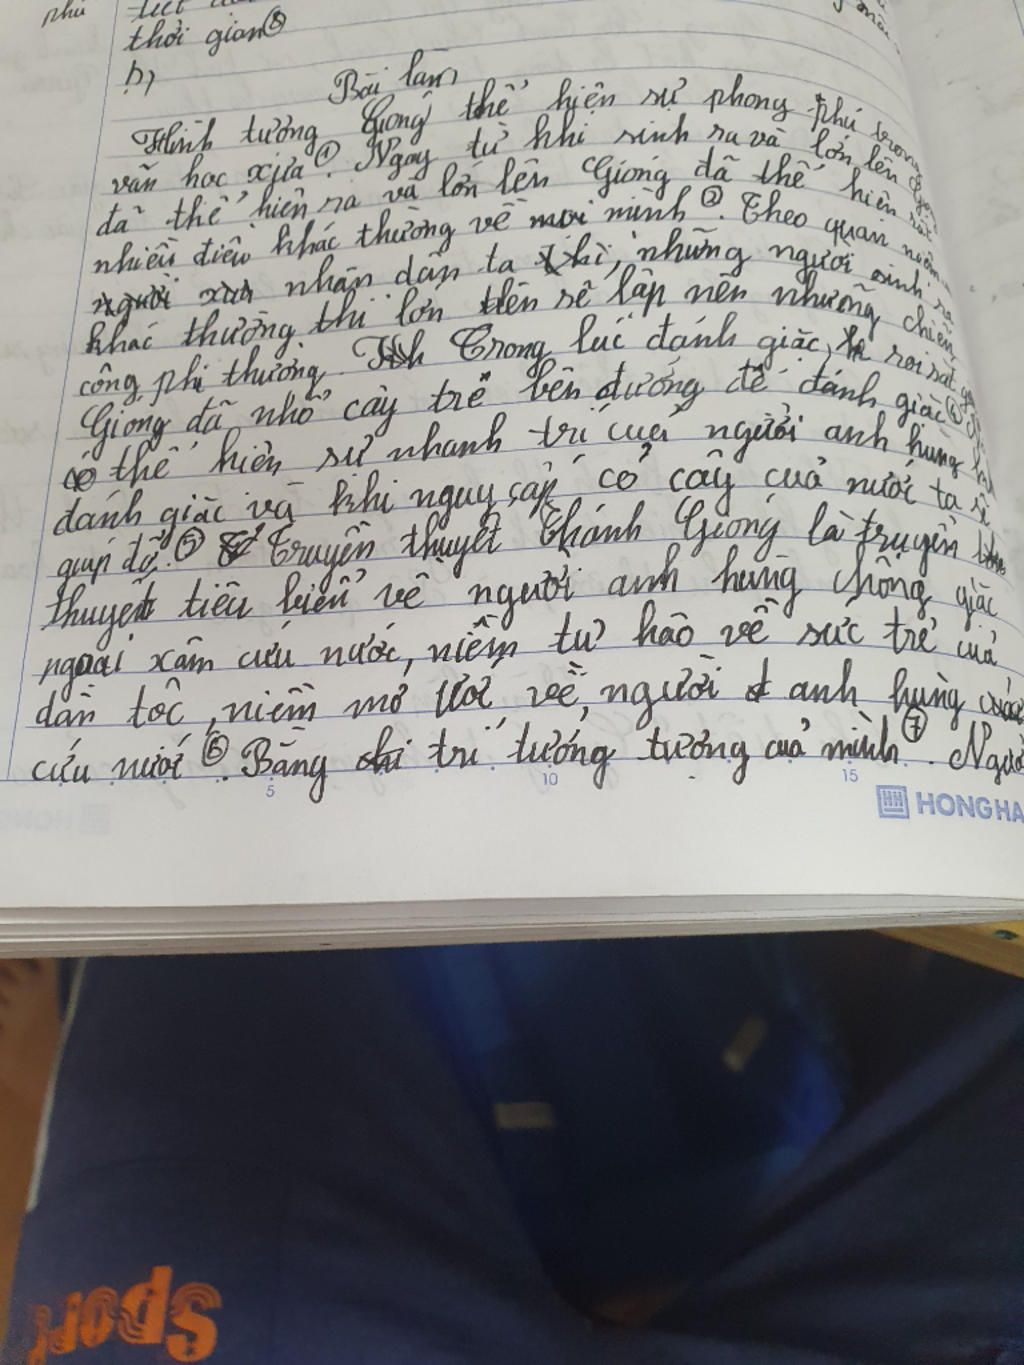 phú
thời gian⑧
b,
Bài làm
Hình tượng Gióng thể hiện sự phong phú trong
văn học xưa①. Ngay từ khi sinh ra và lớn lên
đã thể hiện ra và lớn lên Gióng đã thể hiện rất
nhiều điều khác thường về mình②. Theo quan niệm
nhân dân ta thì, những người sinh ra
khác thường thì lớn lên sẽ lập nên những chiến
công phi thường. Trong lúc đánh giặc, roi sắt gãy
Gióng đã nhổ cây tre bên đường để đánh giặc④
thể hiện sự nhanh trí của người anh hùng
đánh giặc và khi nguy cấp cỏ cây của nước ta sẽ
giúp đỡ.⑤ Truyền thuyết Thánh Gióng là truyền
thuyết tiêu biểu về người anh hùng chống giặc
ngoại xâm cứu nước, niềm tự hào về sức trẻ của
dân tộc, niềm mơ ước về người anh hùng
cứu nước⑥. Bằng trí tưởng tượng của mình⑦. Người
5
10
15
HONG HA
Sport